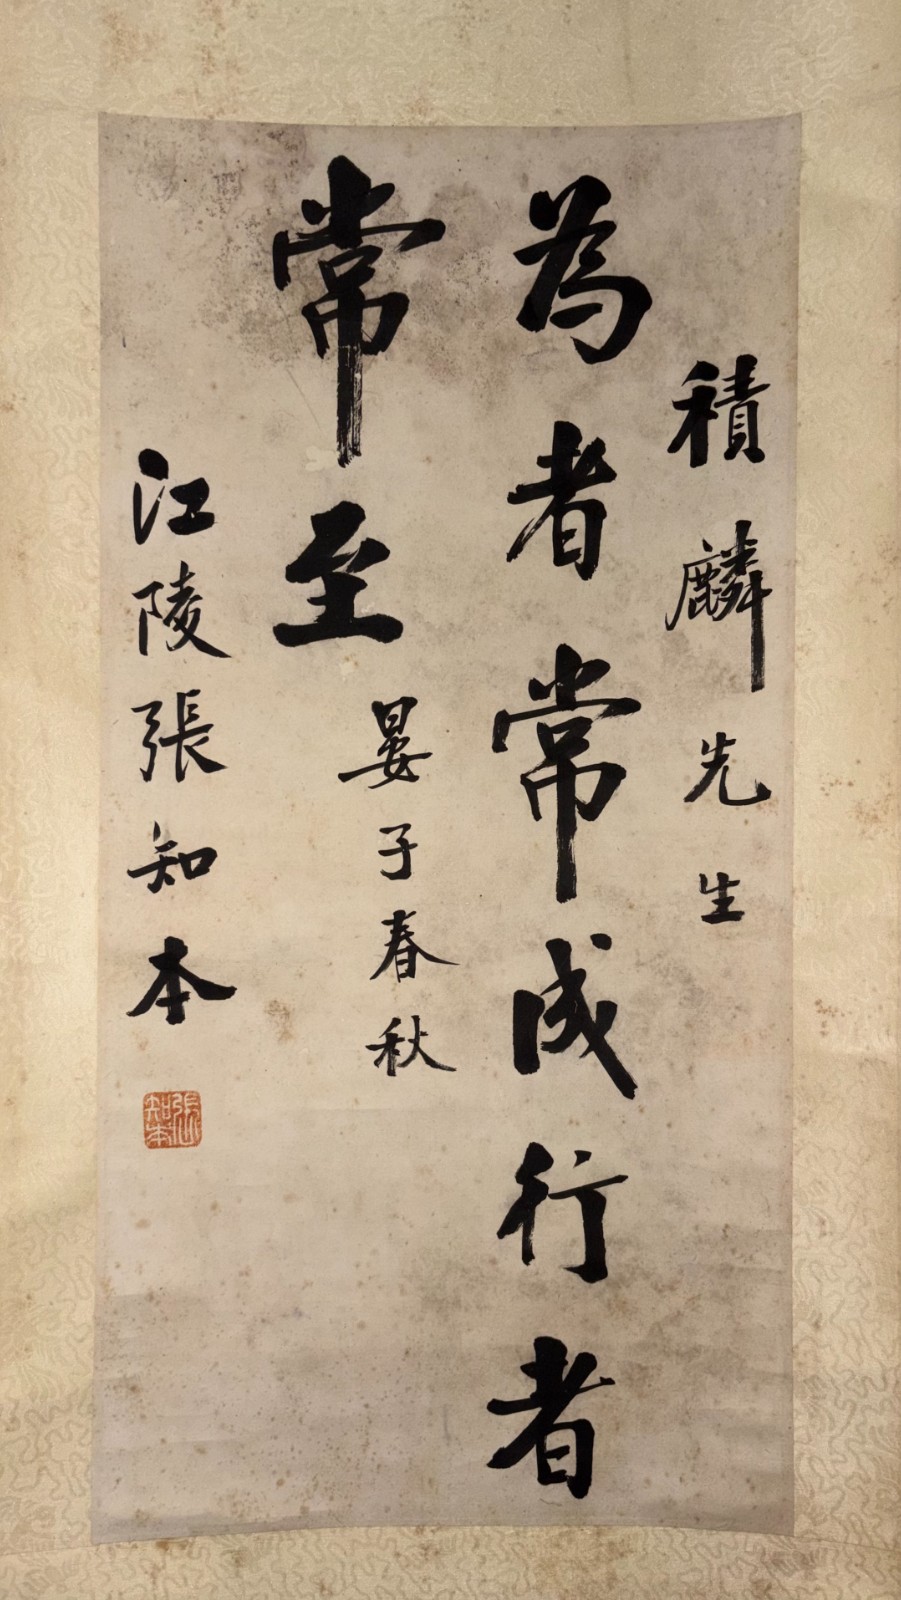 積麟先生
為者常成行者
常至
晏子春秋
江陵張知本
張知本